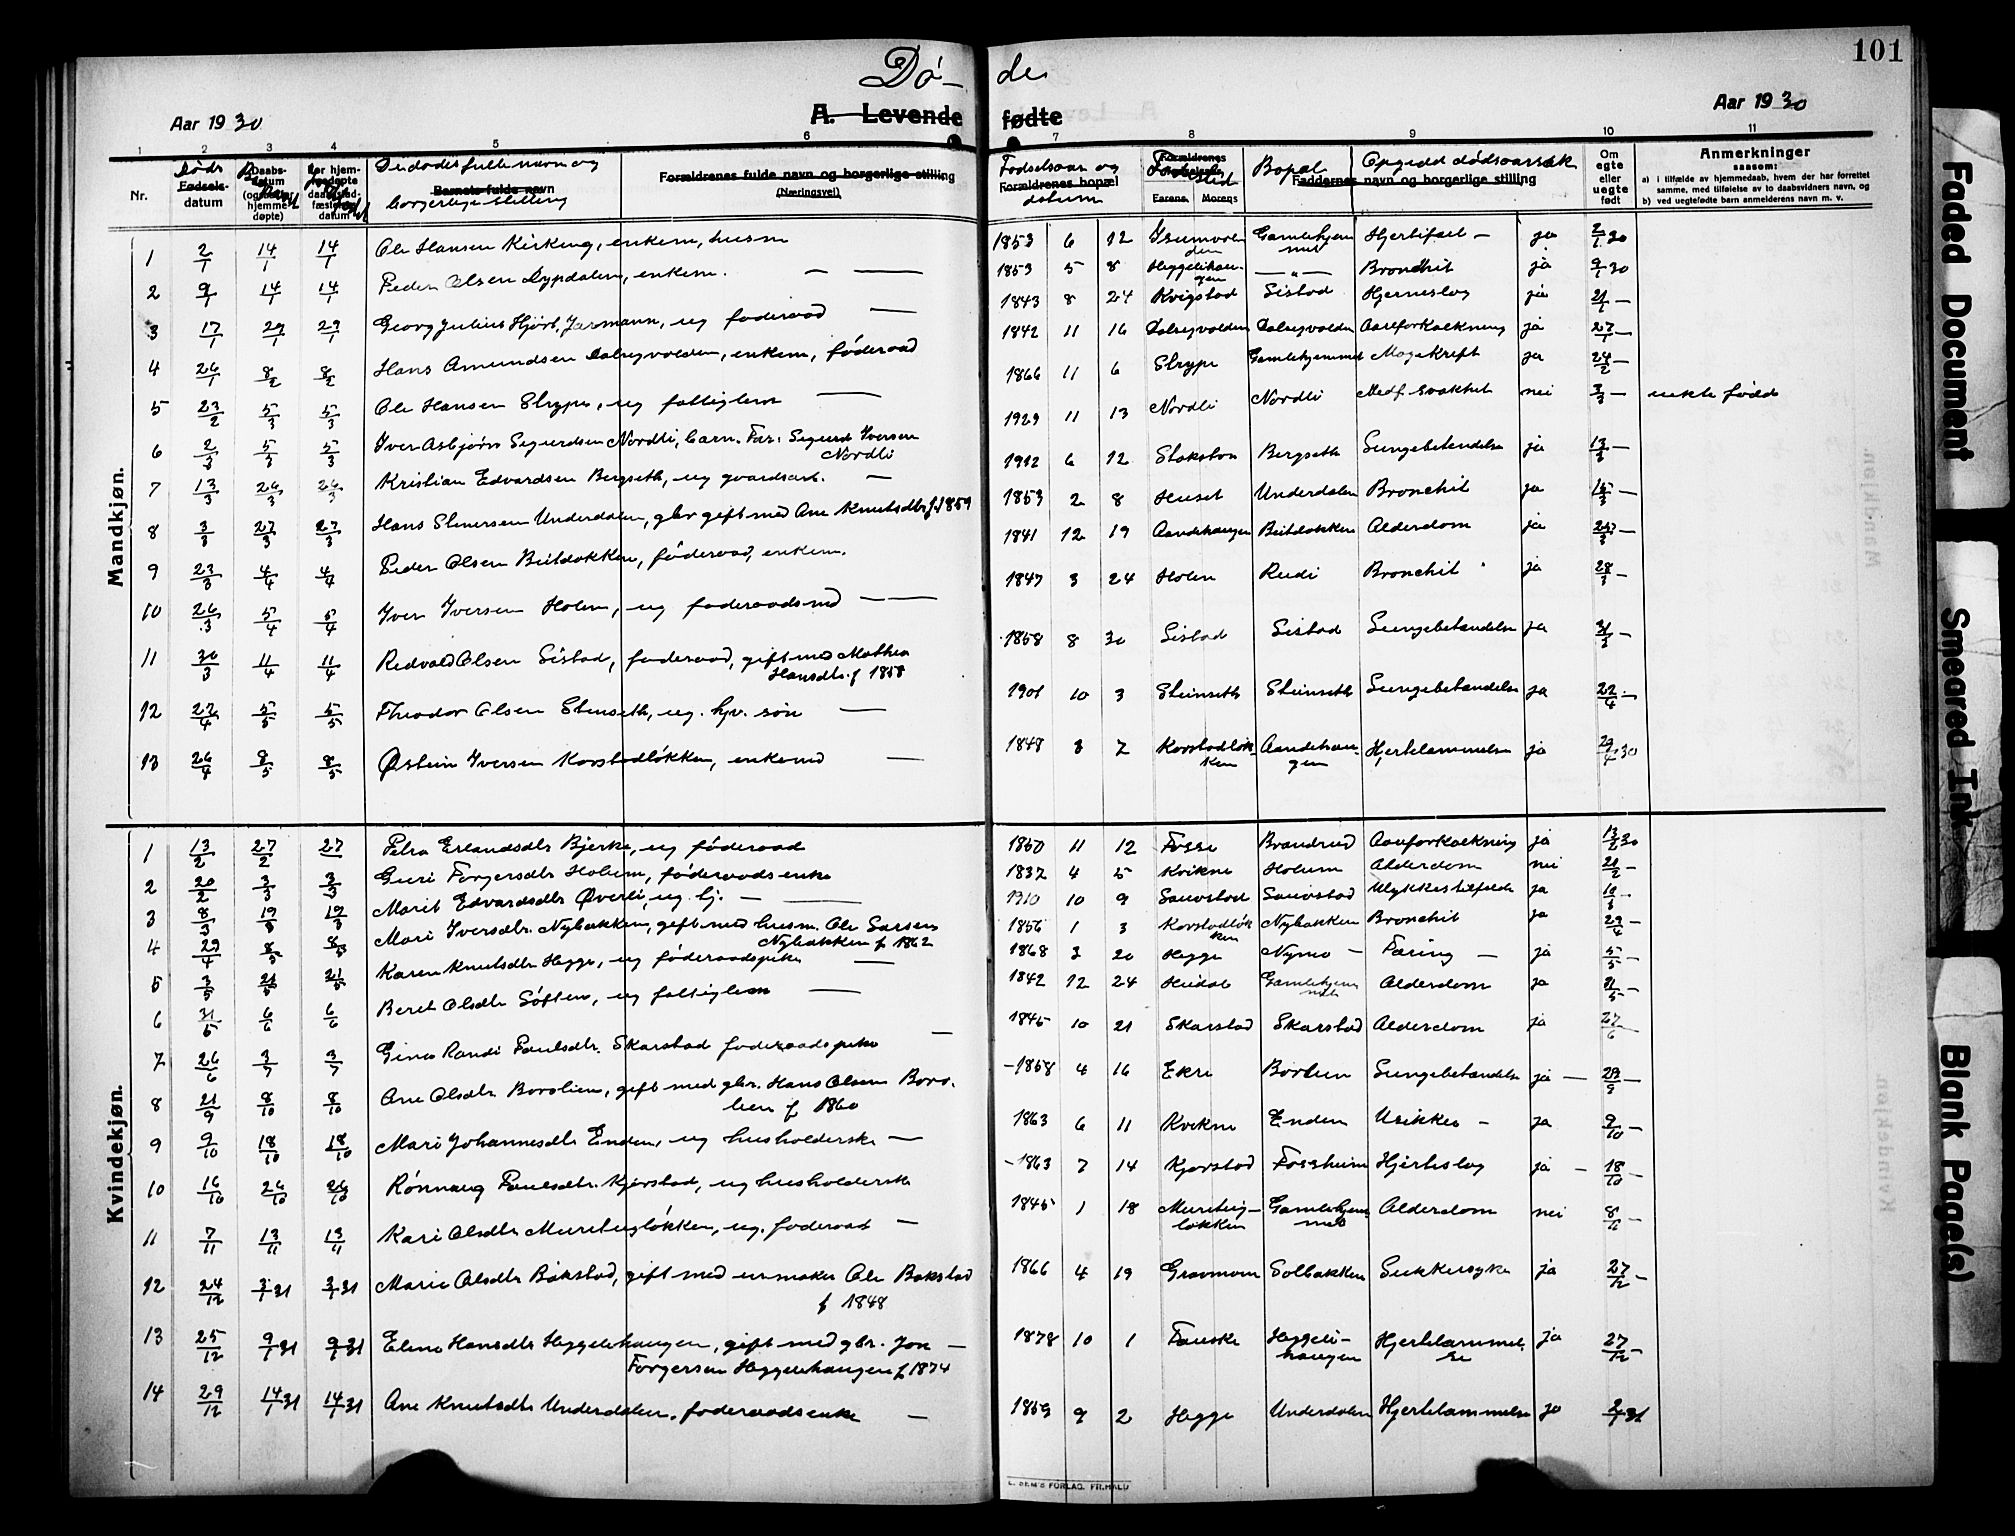 101
Dø- de
Aar 1930 A. Levende fødte Aar 1930
1 2 3 4 5 6 7 8 9 10 11
Nr. Døds Fødsels-datum Daabs-datum (og hjemme-døpte) datum De dødes fulle navn og borgerlige stilling Barnets fulde navn Forældrenes fulde navn og borgerlige stilling (Næringsvei) Fødselsaar og datum Forældrenes bopæl Forældrenes Farens Morens Bopæl Opgidd dødsaarsak Faddernes navn og borgerlige stilling Om egte eller uegte født Anmerkninger
saasom:
a) i tilfælde av hjemmedaab, hvem der har forrettet
samme, med tilføielse av to daabsvidners navn, og
b) ved uegtefødte barn anmelderens navn m. v.
Mandkjøn.
1 2/1 14/1 14/1 Ole Hansen Kirkeng, enkem, husm 1853 6 12 Gamlehjemmet ja 2/1 30
2 9/1 14/1 14/1 Peder Olsen Dypdalen, enkem. — — 1853 5 8 Heggelihaugen —"— Bronchit ja 9/1 30
3 17/1 29/1 29/1 Georg Julius Hjört Jarmann, ug foderaad — 1843 8 24 Kvigstad Sistad Hjerneslag ja 21/1 —
4 26/1 8/2 8/2 Hans Amundsen Dalsegvolden, enkem, föderaad 1842 11 16 Dalsegvolden Dalsegvolden Aareforkalkning ja 27/1 —
5 23/2 5/3 5/3 Ole Hansen Strype, ug fattiglem — 1866 11 6 Strype Gamlehjemmet Magekreft ja 24/2 —
6 2/3 5/3 5/3 Iver Asbjørn Sigurdsen Nordli, barn. Far: Sigurd Iversen Nordli 1929 11 13 Nordli Nordli Medf. svakhet nei 3/3 — uekte född
7 13/3 26/3 26/3 Kristian Edvardsen Bergseth, ug gaardsarb. — 1912 6 12 Stokstad Bergseth Lungebetendelse ja 13/3 —
8 3/3 27/3 27/3 Hans Steinersen Underdalen, gbr gift med Ane Knutsdtr f. 1859 1853 2 8 Huset Underdalen Bronchit ja 15/3 —
9 23/3 4/4 4/4 Peder Olsen Beitdokken, föderaad, enkem. 1841 12 19 Aandehaugen Beitdokken Alderdom ja 25/3 —
10 26/3 5/4 5/4 Iver Iversen Holen, ug foderaadsmd — — 1847 3 24 Holen Rudi Bronchit ja 28/3 —
11 30/3 11/4 11/4 Redvald Olsen Sistad, foderaad, gift med Mathea Hansdtr. f 1858 1858 8 30 Sistad Sistad Lungebetendelse ja 31/3 —
12 22/4 5/5 5/5 Theodor Olsen Stenseth, ug. hjv. sön — 1901 10 3 Steinseth Steinseth Lungebetendelse ja 22/4 —
13 26/4 8/5 8/5 Østein Iversen Korstadlökken, enkemd — 1848 3 7 Korstadløkken Aandehaugen Hjertelammelse ja 29/4 30
Kvindekjøn.
1 13/2 27/2 27 Petra Erlandsdtr Bjerke, ug föderaad 1860 11 12 Fosse Brandrud Aareforkalkning ja 13/2 30
2 20/2 3/3 3/3 Guri Torgersdtr Holum, föderaads enke 1837 4 5 Kvikne Holum Alderdom nei 21/2 —
3 8/3 19/3 19/3 Marit Edvardsdtr Øverli, ug. hj. — — 1910 10 9 Sauvstad Sauvstad Ulykkestilfelde ja 10/3 —
4 29/4 8/5 8/5 Mari Iversdtr. Nybakken, gift med husm. Ole Larsen Nybakken f 1862 1856 1 3 Korstadløkken Nybakken Bronchit ja 29/4 —
5 3/5 21/5 21/5 Karen Knutsdtr Hegge, ug föderaadspike — 1868 3 20 Hegge Nymo — Tæring — ja 5/5 —
6 31/5 6/6 6/6 Beret Olsdtr Söften, ug fattiglem — 1842 12 24 Heidal Gamlehjemmet Alderdom ja 31/5 —
7 26/6 3/7 3/7 Gina Randi Paulsdtr. Skarstad foderaadspike — 1845 10 21 Skarstad Skarstad Alderdom ja 27/6 —
8 21/9 8/10 8/10 Ane Olsdtr Borolien, gift med gbr. Hans Olsen Borolien f 1860 1858 4 16 Ekre Lungebetendelse ja — 23/9 —
9 9/10 18/10 18/10 Mari Johannesdtr Enden, ug husholderske — 1863 6 11 Kvikne Enden Usikker — ja 9/10 —
10 16/10 26/10 26/10 Rönnaug Paulsdtr. Kjorstad, ug husholderske 1863 7 14 Kjorstad Fossheim Hjerteslag ja — 18/10 —
11 7/11 13/11 13/11 Kari Olsdtr Musteuglökken, ug. foderaad — 1845 1 18 Gamlehjemmet Alderdom nei 8/11 —
12 24/12 3/1 31 3/1 31 Marie Olsdtr Bakstad, gift med urmaker Ole Bakstad f 1848 1866 4 19 Gravmoen Solbakken Sukkersyke ja 27/12 —
13 25/12 9/1 31 9/1 31 Eline Hansdtr Heggelihaugen, gift med gbr. Jon Torgersen Heggelihaugen f 1874 1878 10 1 Fauske Heggelihaugen Hjertelammelse ja 27/12 —
14 29/12 14/1 31 14/1 31 Ane Knutsdtr Underdalen, foderaadsenke — 1859 9 2 Hegge Underdalen Hjertelammelse ja 2/1 31
E. SEM'S FORLAG, FR.HALD
Faded Document
Smeared Ink
Blank Page(s)